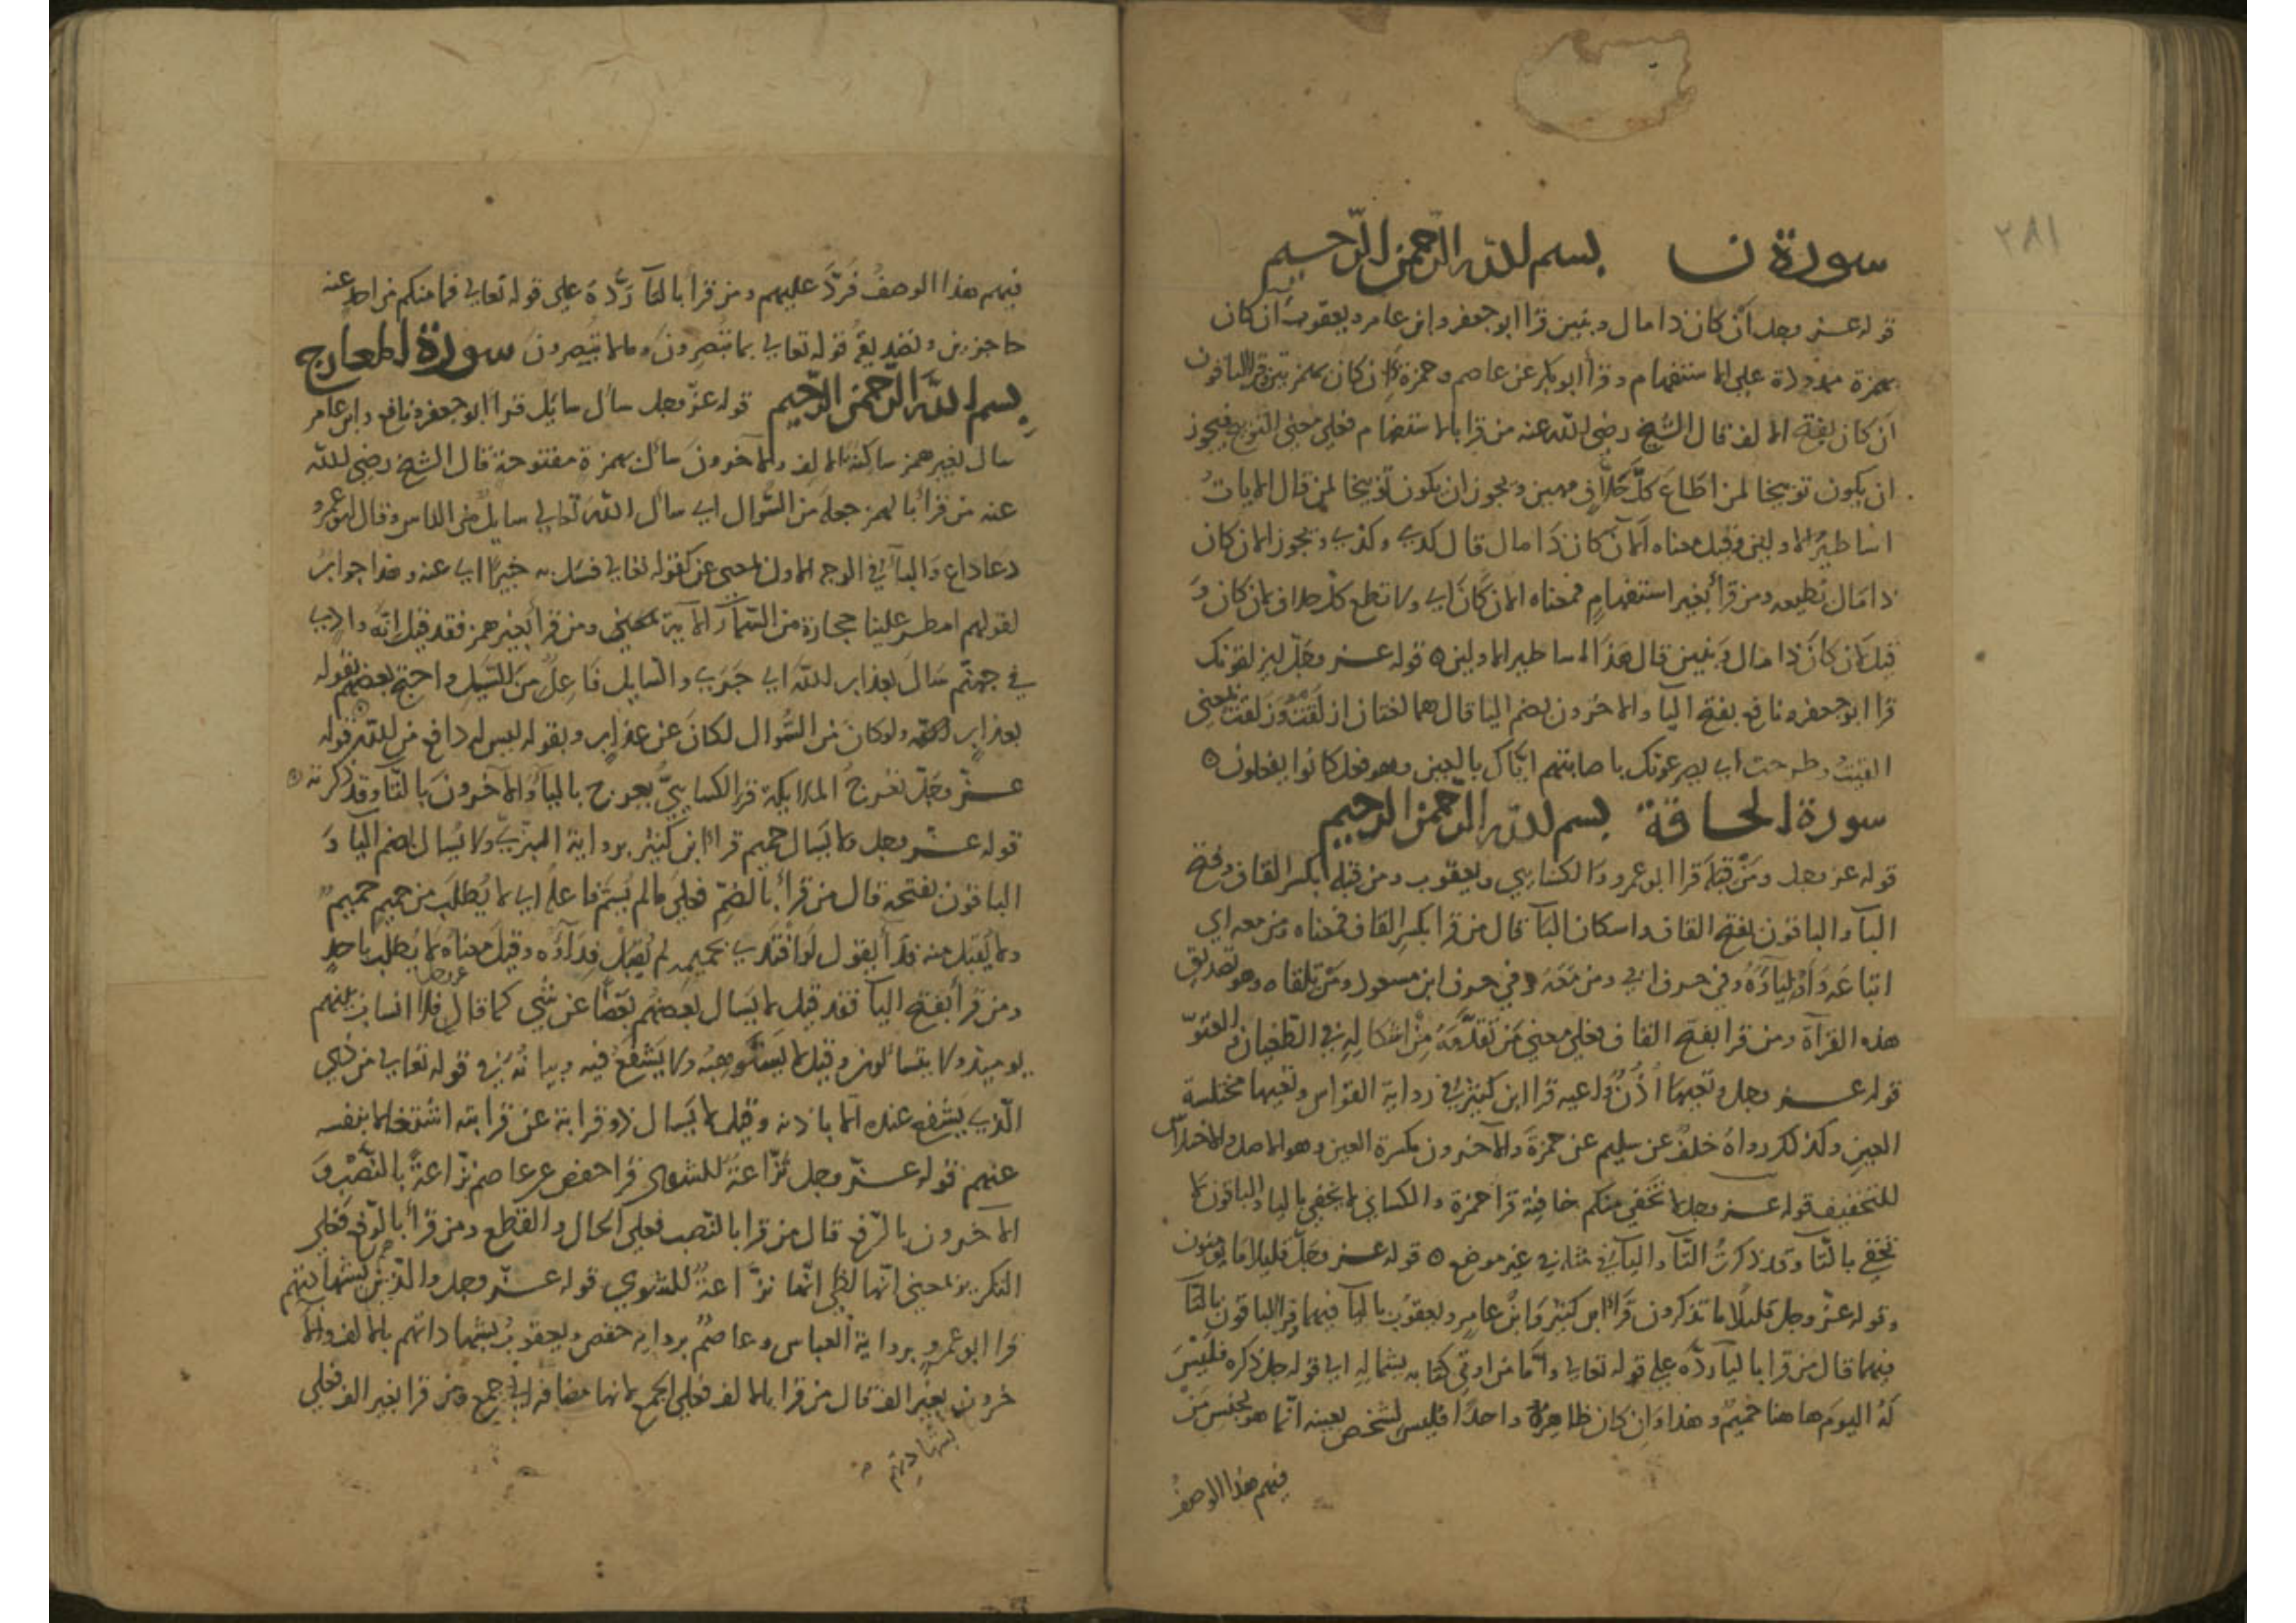 ٢٨١
سورة ن بسم الله الرحمن الرحيم
قوله عز وجل أن كان ذا مال وبنين قرا ابو جعفر وابن عامر ويعقوب آن كان
بهمزة ممدودة على الاستفهام وقرأ ابو بكر عن عاصم وحمزة أأن كان بهمزتين وقرا الباقون
أن كان بفتح الالف قال الشيخ رضي الله عنه من قرا بالاستفهام فعلى معنى التوبيخ فيجوز
ان يكون توبيخا لمن اطاع كلّ حلّاف مهين ويجوز ان يكون توبيخا لمن قال لايات
اساطير الاولين وقيل معناه ألأن كان ذا مال قال كذي وكذي ويجوز ألان كان
ذا مال تطيعه ومن قرأ بغير استفهام فمعناه لان كان اي ولا تطع كل حلاف لان كان وَ
قيل لان كان ذا مال وبنين قال هذا اساطير الاولين ٥ قوله عز وجلّ ليزلقونك
قرا ابو جعفر ونافع بفتح اليآ والاخرون بضم اليا قال هما لغتان ازلقت وزلقت بمعنى
القيت وطرحت اي يصرعونك باصابتهم ايّاك بالعين وهو فعل كانوا يفعلون ٥
سورة الحاقة بسم الله الرحمن الرحيم
قوله عز وجل ومن قبله قرا ابو عمرو والكسايي ويعقوب ومن قبله بكسر القاف وفتح
البآ والباقون بفتح القاف واسكان البآ قال من قرا بكسر القاف فمعناه ومن معه اي
اتباعه واوليآؤه وفي حرف ابي ومن معَه وفي حرف ابن مسعود ومن تلقاه وهو تصديق
هذه القرآة ومن قرا بفتح القاف فعلى معنى من تقدّمه من اشكاله في الطغيان والعتوّ
قوله عز وجل وتعيها أذن واعيه قرا ابن كثير في رواية القواس وتعيها مختلسة
العين وكذلك رواه خلف عن سليم عن حمزة والآخرون بكسرة العين وهو الاصل والاختلاس
للتخفيف قوله عز وجل لا تخفى منكم خافية قرا حمزة والكسايي لا يخفى باليا والباقون لا
تخفى بالتا وقد ذكرت التآ واليآ في مثله في غير موضع ٥ قوله عز وجلّ قليلا ما يؤمنون
وقوله عزّ وجل قليلًا ما تذكرون قرأ ابن كثير وابن عامر ويعقوب باليآ فيهما وقرا الباقون بالتآ
فيهما قال من قرا باليآ ردّه على قوله تعالي وأمّا من اوتي كتابه بشماله الي قوله جل ذكره فليس
له اليوم هاهنا حميم وهذا وان كان ظاهره واحدًا فليس لشخص بعينه انّما هو لجنس من
فيهم هذا الوصف
فيهم هذا الوصف فردّ عليهم ومن قرا بالتآ ردّه على قوله تعالي فما منكم من احد عنه
حاجزين وتصديقه قوله تعالي بما تبصرون وما لا تبصرون سورة المعارج
بسم الله الرحمن الرحيم قوله عزّ وجل سأل سائل قرا ابو جعفر ونافع وابن عامر
سال بغير همز ساكنة الالف والآخرون سأل بهمزة مفتوحة قال الشيخ رضي الله
عنه من قرأ بالهمز جعله من السؤال اي سأل الله تعالي سايل من الناس وقال ابو عمرو
دعا داع والبآ في الوجه الاول بمعنى عن كقوله تعالي فسل به خبيرًا اي عنه وهذا جواب
لقولهم امطر علينا حجارة من السمآ الآية بمعنى ومن قرأ بغير همز فقد قيل انّه وادٍ
في جهنّم سال بعذاب الله اي جري والسايل فاعل من السيل واحتج بعضهم بقوله
بعذاب ولو كان من السؤال لكان عن عذاب وبقوله ليس له دافع من الله قوله
عزّ وجلّ تعرج الملايكة قرا الكسايي يعرج باليآ والآخرون بالتآ وقد ذكرته
قوله عزّ وجل ولا يسال حميم قرا ابن كثير برواية البزيّ ولا يُسال بضم اليآ وَ
الباقون بفتحه قال من قرأ بالضمّ فعلى ما لم يسمّ فاعله اي لا يُطلب من حميم حميم
ولا يقبل منه فدآ يقول لو افتدي بحميمه لم يقبل فدآؤه وقيل معناه لا يُطلب باحد
ومن قرأ بفتح اليآ فقد قيل لا يسال بعضهم بعضًا عن شي كما قال فلا انساب بينهم
يوميذ ولا يتسائلون وقيل لا يشفع فيه وبيانه في قوله تعالي من ذي
الذي يشفع عنده الّا باذنه وقيل لا يسال ذو قرابة عن قرابته اشتغالا بنفسه
عنهم قوله عزّ وجل نزّاعةً للشوى قرا حفص عن عاصم نزّاعةً بالنصب وَ
الآخرون بالرّفع قال من قرا بالنصب فعلى الحال والقطع ومن قرأ بالرّفع فعلى
التكرير بمعنى انّها لظى انّها نزّاعة للشوي قوله عزّ وجل والذين بشهادتهم
قرا ابو عمرو برواية العباس وعاصم برواية حفص ويعقوب بشهاداتهم بالالف والآ
خرون بغير الف قال من قرا بالالف فعلى الجمع لانها مضافة الي جمع ومن قرا بغير الف فعلى
بشهادتهم